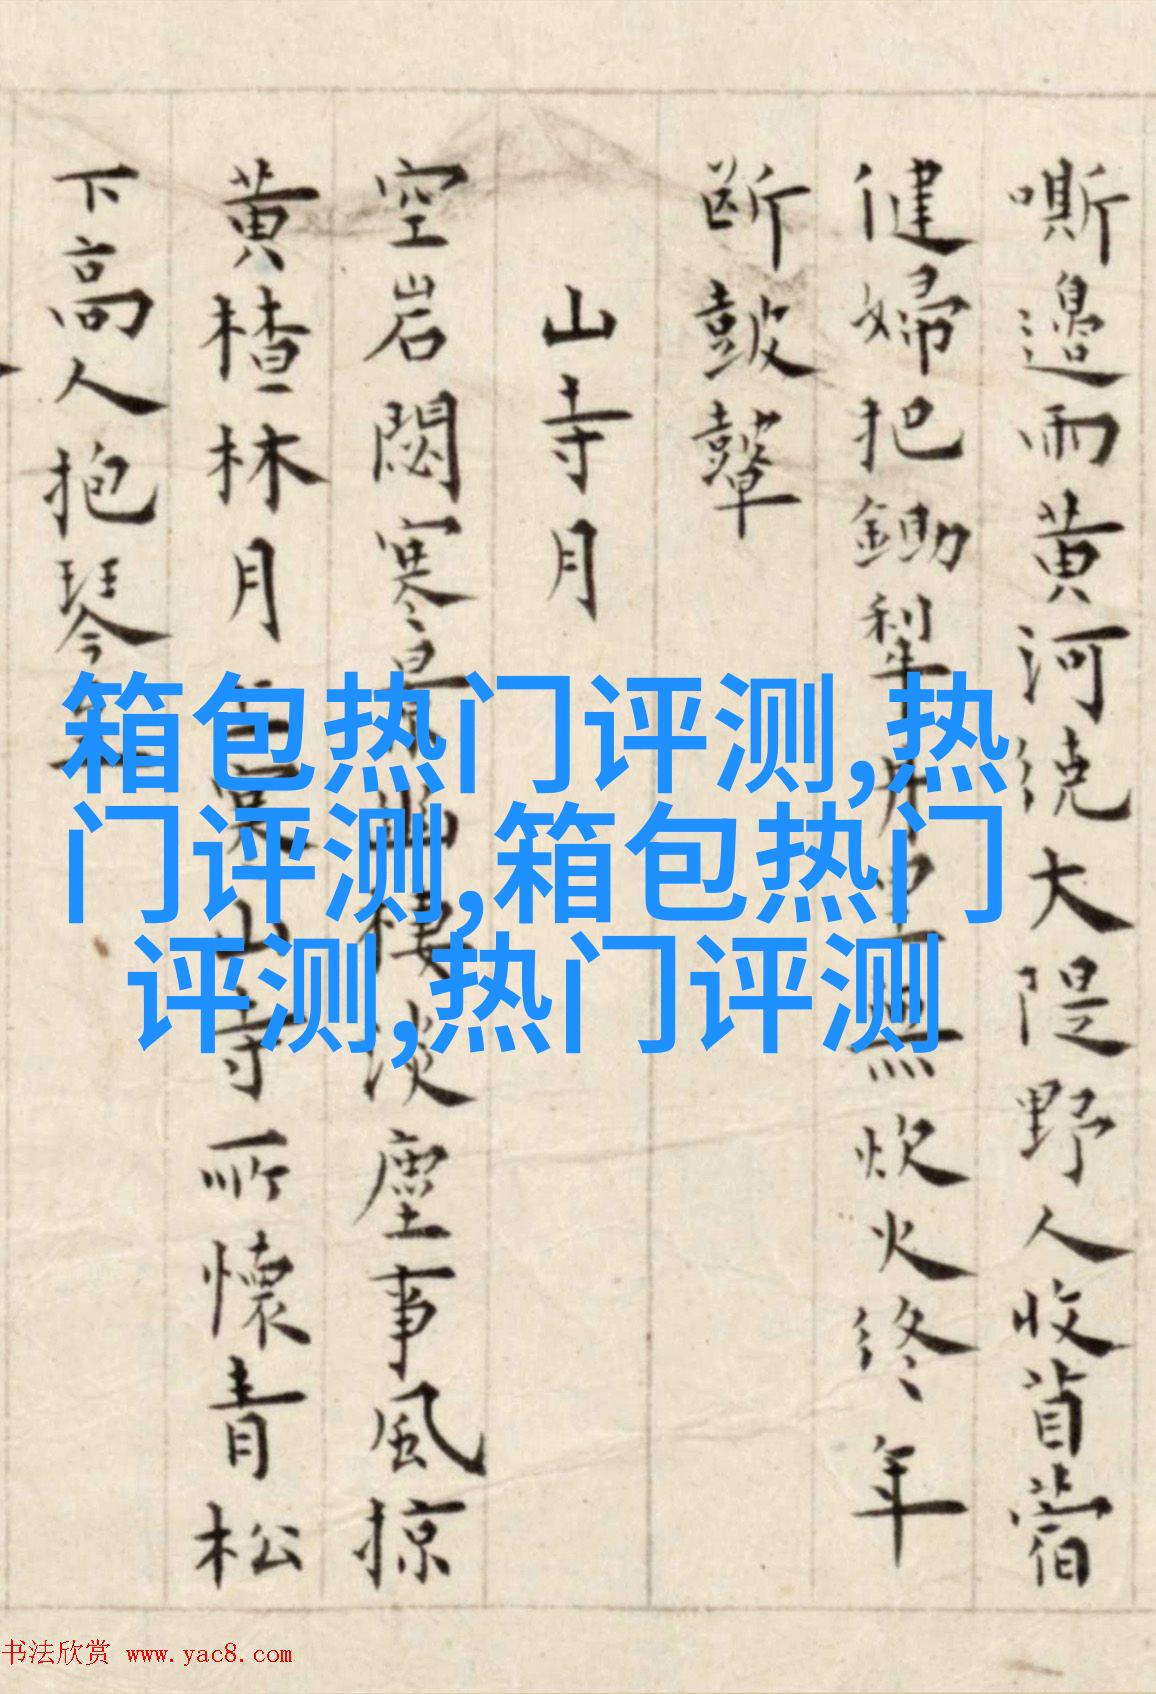 嘶邊雨黃河繞大隄野人收苜蓿
健婦把鋤犁十年里無炊火終年
斷鼓鼙
山寺月
空岩閟寒泉幽棲淡塵事風掠
黃楂林月上棠山寺所懷青松
下高人抱琴至
箱包热门评测,热
门评测,箱包热门
评测,热门评测
书法欣赏 www.yac8.com